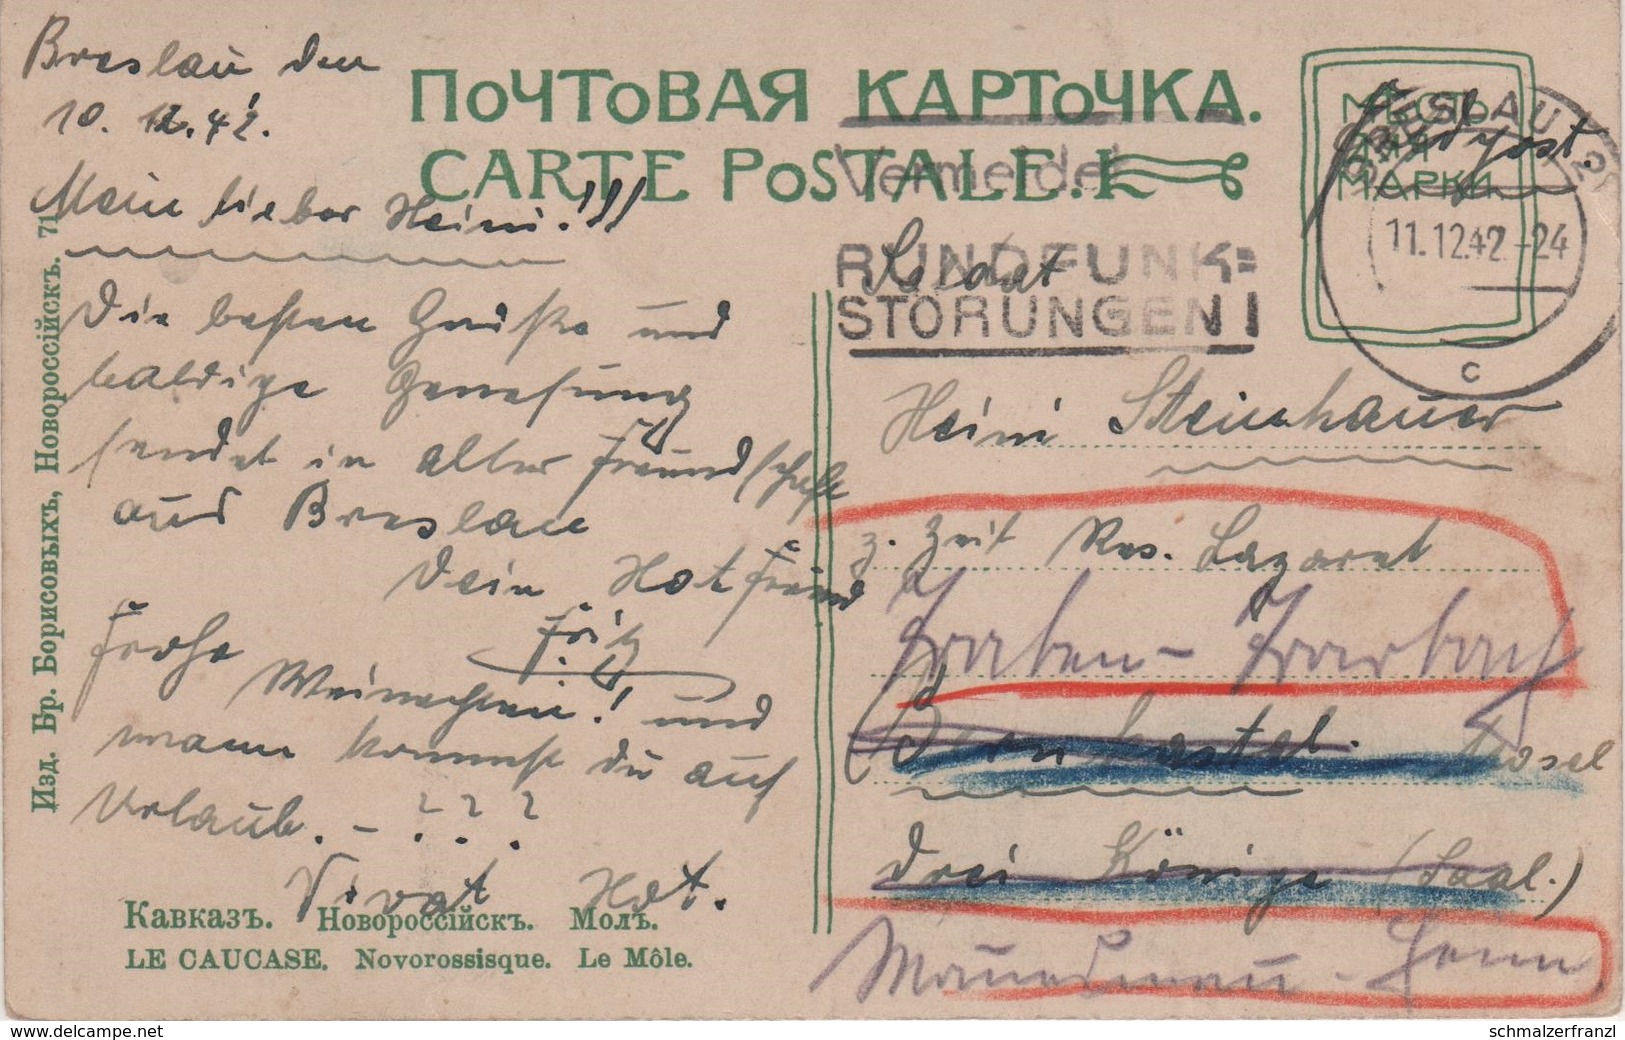 Breslau den
10. 12. 42.
Mein lieber Heini!!!
Die besten Grüße und
baldige Genesung
sendet in alter Freundschaft
aus Breslau
Dein Hot Freund
Fritz
Frohe
Weinachten! und
wann kommst du auf
Urlaub. – ? ? ?
Vivat Hot.
ПОЧТОВАЯ КАРТОЧКА.
CARTE POSTALE.
Изд. Бр. Борисовыхъ, Новороссійскъ. 71
Кавказъ. Новороссійскъ. Молъ.
LE CAUCASE. Novorossisque. Le Môle.
МѢСТО
ДЛЯ
МАРКИ
Feldpost.
BRESLAU 2
11.12.42.-24
c
Vermeidet
RUNDFUNK=
STÖRUNGEN!
Soldat
Heini Steinhauer
z. Zeit Res. Lazaret
Traben - Trarbach
(Bernkastel. Mosel
Drei Könige (Saal.)
schmalzerfranzl
www.delcampe.net